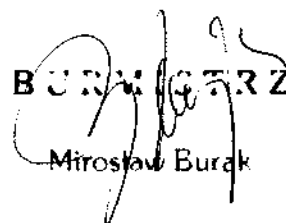 BURMISTRZ
Mirosław Burak